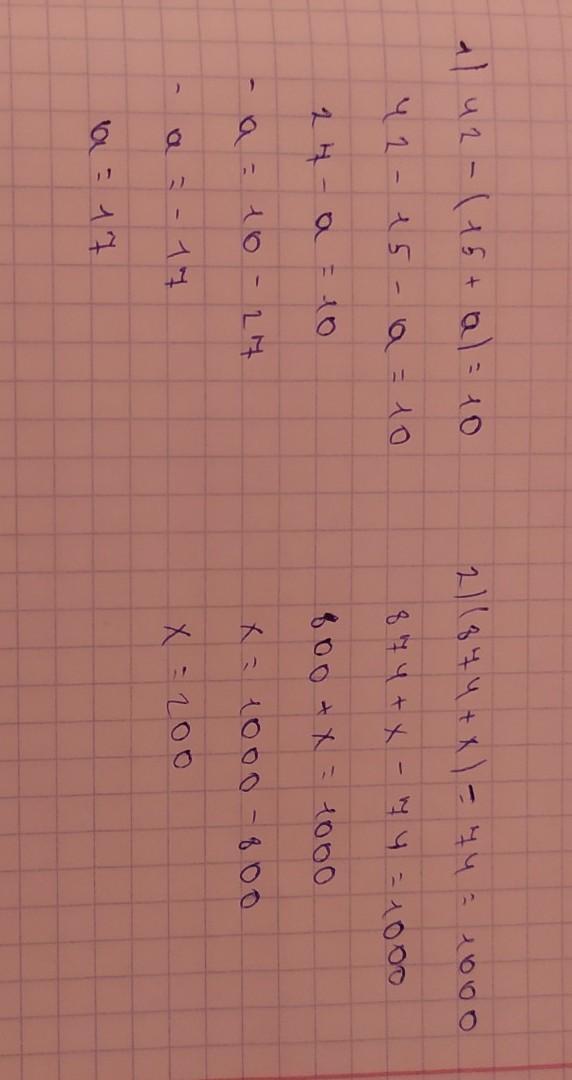 1) 42 - (15 + a) = 10
42 - 15 - a = 10
27 - a = 10
- a = 10 - 27
- a = - 17
a = 17
2) (874 + x) - 74 = 1000
874 + x - 74 = 1000
800 + x = 1000
x = 1000 - 800
x = 200